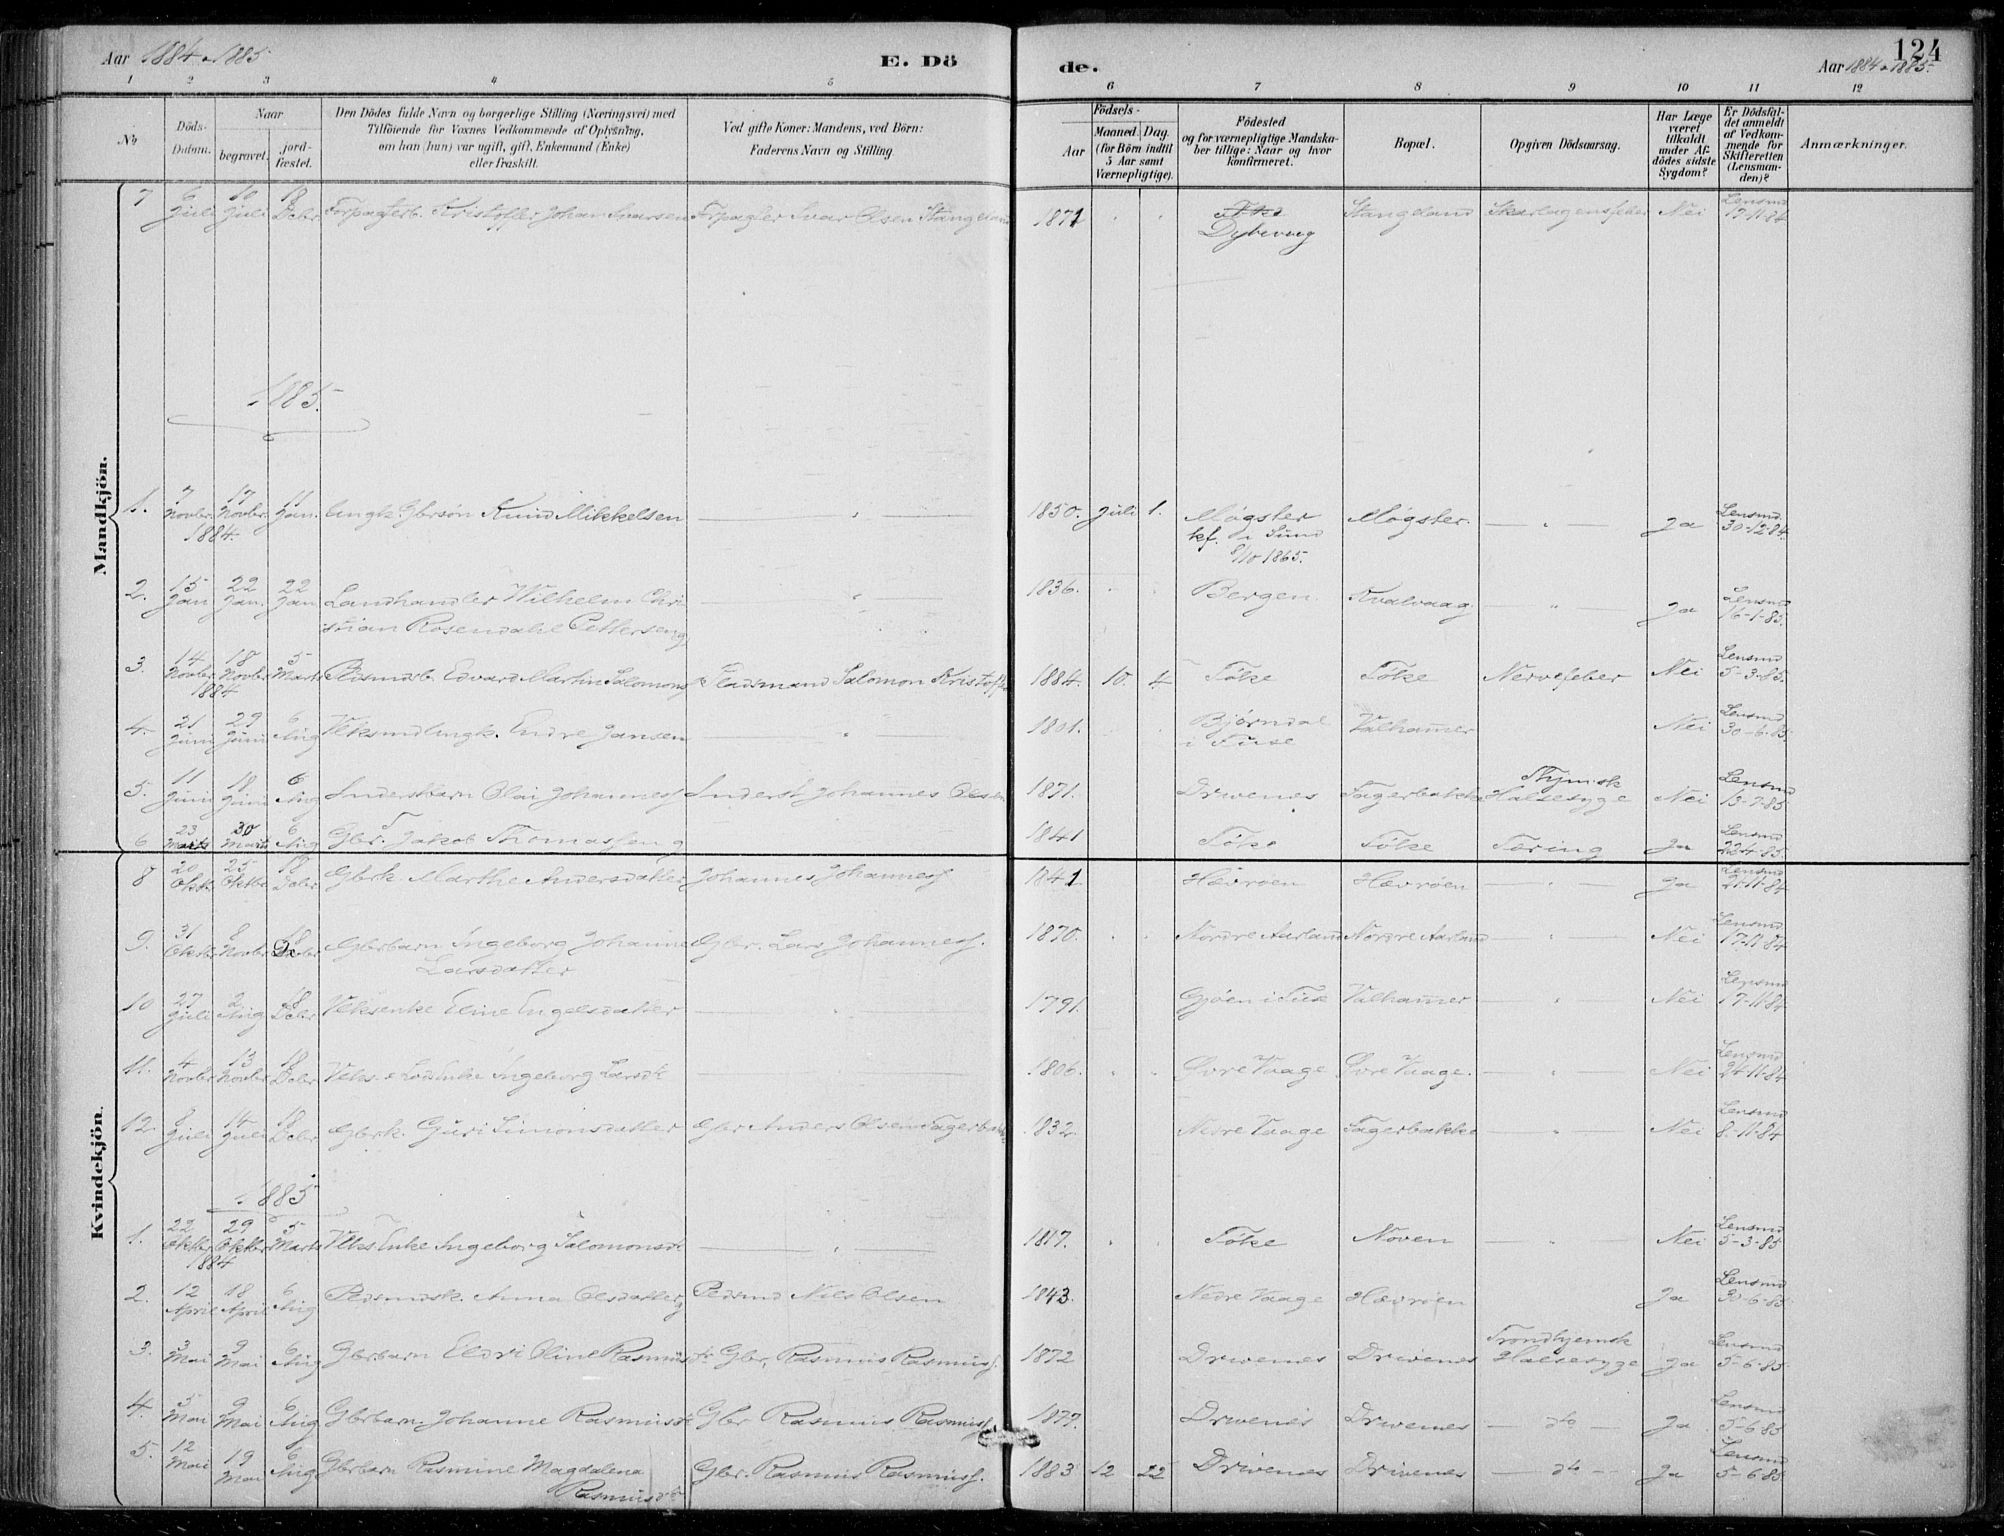 Aar 1884 & 1885. E. Dö de. Aar 1884 & 1885. 124
1 2 3 4 5 6 7 8 9 10 11 12
No
Döds-Datum.
Naar
begravet.
jord-fæstet.
Den Dödes fulde Navn og borgerlige Stilling (Næringsvei) med
Tilföiende for Voxnes Vedkommende af Oplysning,
om han (hun) var ugift, gift, Enkemand (Enke)
eller fraskilt.
Ved gifte Koner: Mandens, ved Börn:
Faderens Navn og Stilling.
Födsels-
Aar
Maaned. Dag.
(for Börn indtil
5 Aar samt
Værnepligtige).
Födested
og for værnepligtige Mandska-
ber tillige: Naar og hvor
konfirmeret.
Bopæl.
Opgiven Dödsaarsag.
Har Læge
været
tilkaldt
under Af-
dödes sidste
Sygdom?
Er Dödsfal-
det anmeldt
af Vedkom-
mende for
Skifteretten
(Lensman-
den)?
Anmærkninger.
Mandkjön.
7 6 Juli 10 Juli 18 Decbr Forpagterb. Kristoffer Johan Ivarsen Forpagter Ivar Olsen Stangeland 1871 Dybevaag Stangeland Skarlagensfeber Nei Lensmd 17-11-84
1885.
1. 7 Novbr. 1884. 17 Novbr. 11 Jan. Ungk. Gbrsøn Knud Mikkelsen 1850. Juli 1. Møgster kf. i Sund 8/10 1865. Møgster. Ja Lensmd. 30-12-84.
2. 15 Jan 22 Jan. 22 Jan. Landhandler Wilhelm Chri
stian Rosendahl Pettersen g 1836. Bergen. Kvalvaag Ja Lensmd 16-1-85.
3. 14 Novbr 1884 18 Novbr 5 Marts Pladsmdsb. Edvard Martin Salomons. Pladsmand Salomon Kristoffer 1884. 10. 4. Føke Føke Nervefeber Nei Lensmd 5-3-85.
4. 21 Juni 29 Juni 6 Aug Vlksmd Ungk. Endre Jansen 1801. Bjørndal i Fuse Valhammer Nei Lensmd 30-6-85.
5. 11 Juni 18 Juni 6 Aug Inderstbarn Olai Johanness. Inderst Johannes Olsen 1871. Drivenes Fagerbakke Thjemsk Halsesyge Nei Lensmd 13-7-85
6 23 Marts 30 Marts 6 Aug Gbr. Jakob Thomassen g 1841 Føke Føke Tæring Ja Lensmd 22-4-85.
Kvindekjön.
8 20 Oktb. 25 Oktbr 18 Decbr Gbrk. Marthe Andersdatter Johannes Johanness. 1841 Hævrøen Hævrøen Ja Lensmd 21-11-84
9. 31 Oktbr 8 Novbr 18 Decbr Gbrbarn Ingeborg Johanne
Larsdatter Gbr. Lars Johanness. 1870. Nordre Aarland Nordre Aarland Nei Lensmd 17-11-84
10 27 Juli 2 Aug 18 Decbr Vlksenke Eline Engelsdatter 1791. Gjøen i Fuse Valhammer Nei Lensmd 17-11-84
11. 4 Novbr 13 Novbr 18 Decbr Vlks. & Lods Enke Ingeborg Larsdt 1806. Øvre Vaage Øvre Vaage. Nei Lensmd 24-11-84
12. 8 Juli 14 Juli 18 Decbr Gbrk. Guri Simonsdatter Gbr Anders Olsen Fagerbakke 1832. Nedre Vaage Fagerbakke Nei Lensmd 8-11-84
1885
1. 22 Oktbr 1884 29 Oktbr 5 Marts Vlks Enke Ingeborg Salomonsdt 1817. Føke Noven Nei Lensmd 5-3-85
2. 12 April 18 April 6 Aug Pladsmdsk. Anna Olsdatter g Pladsmd Nils Olsen 1843. Nedre Vaage Hævrøen Ja Lensmd 30-6-85
3. 3 Mai 9 Mai 6 Aug Gbrbarn Eldri Oline Rasmusdtr Gbr. Rasmus Rasmuss. 1872 Drivenes Drivenes Trondhjemsk Halsesyge Ja Lensmd 5-6-85
4. 5 Mai 9 Mai 6 Aug Gbrbarn. Johanne Rasmusdt Gbr Rasmus Rasmuss. 1877. Drivenes Drivenes do Ja Lensmd 5-6-85
5. 12 Mai 19 Mai 6 Aug Gbrbarn Rasmine Magdalena
Rasmusdtr Gbr. Rasmus Rasmuss. 1883 12 22 Drivenes Drivenes do Ja Lensmd 5-6-85